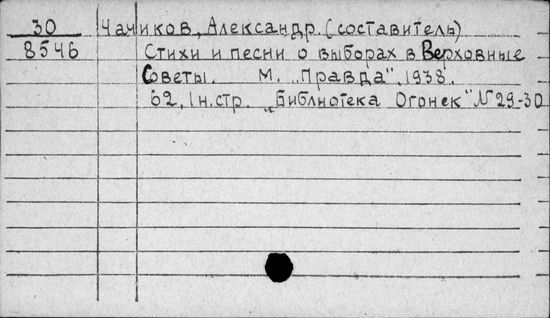 30 Чачиков, Александр. (составитель)
8546 Стихи и песни о выборах в Верховные
Советы. М. „Правда", 1938.
62, 1 н.стр. „Библиотека Огонек" N 29-30